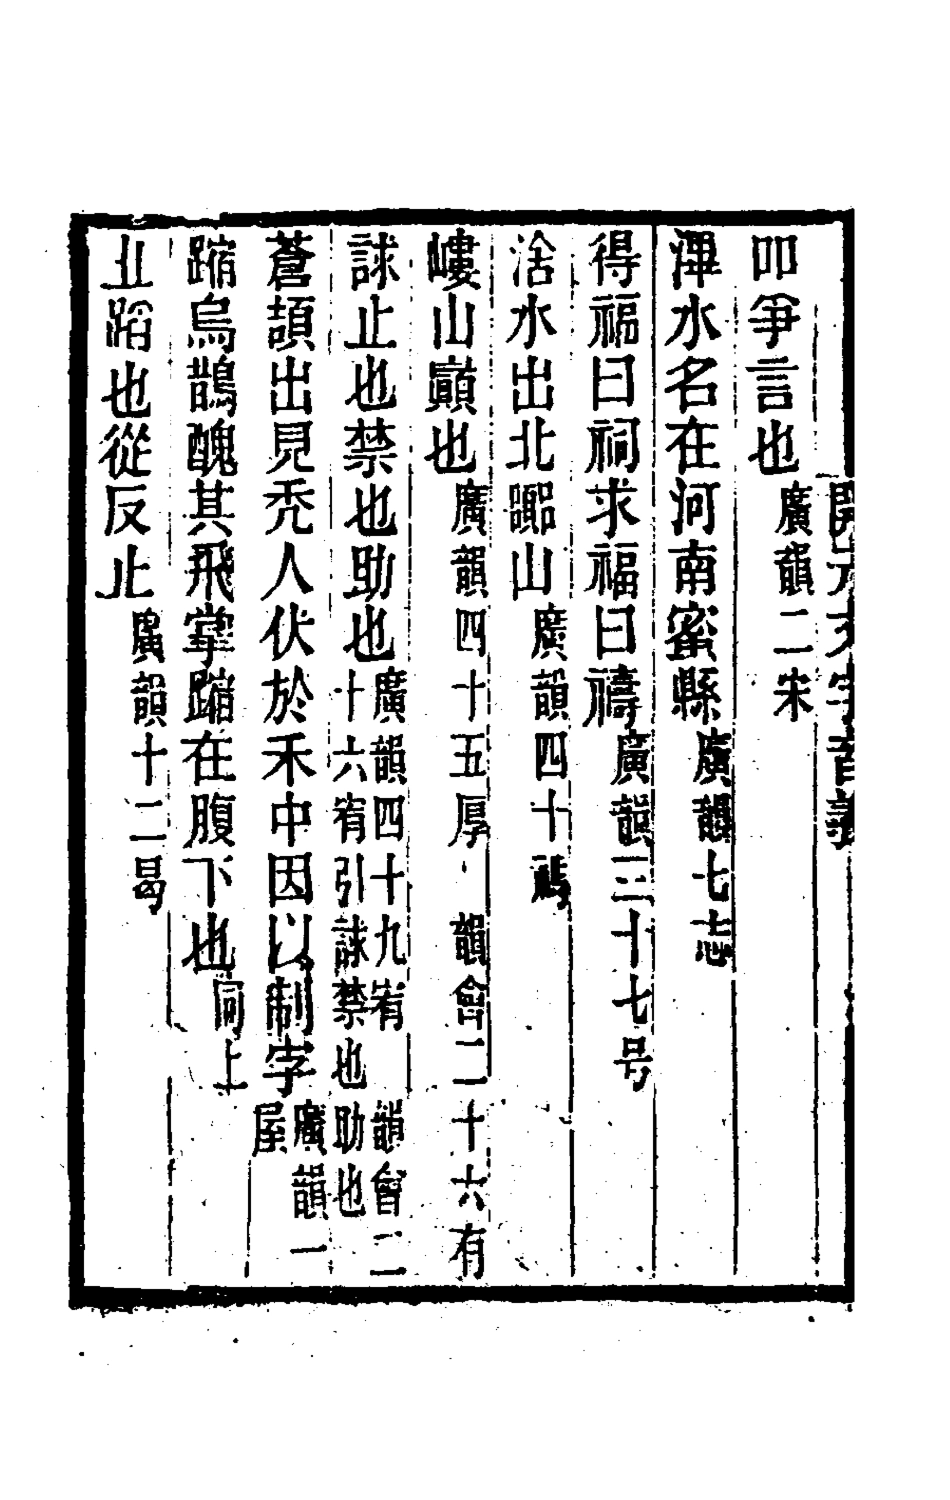 開元文字音義
吅爭言也廣韻二宋
潩水名在河南蜜縣廣韻七志
得福曰祠求福曰禱廣韻三十七号
湁水出北嚻山廣韻四十禡
嶁山巔也廣韻四十五厚 韻會二十六有
䛆止也禁也助也廣韻四十九宥 韻會二十六宥引䛆禁也助也
蒼頡出見禿人伏於禾中因以制字廣韻一屋
蹜烏鵲醜其飛掌蹜在腹下也同上
㐄蹈也從反止廣韻十二曷